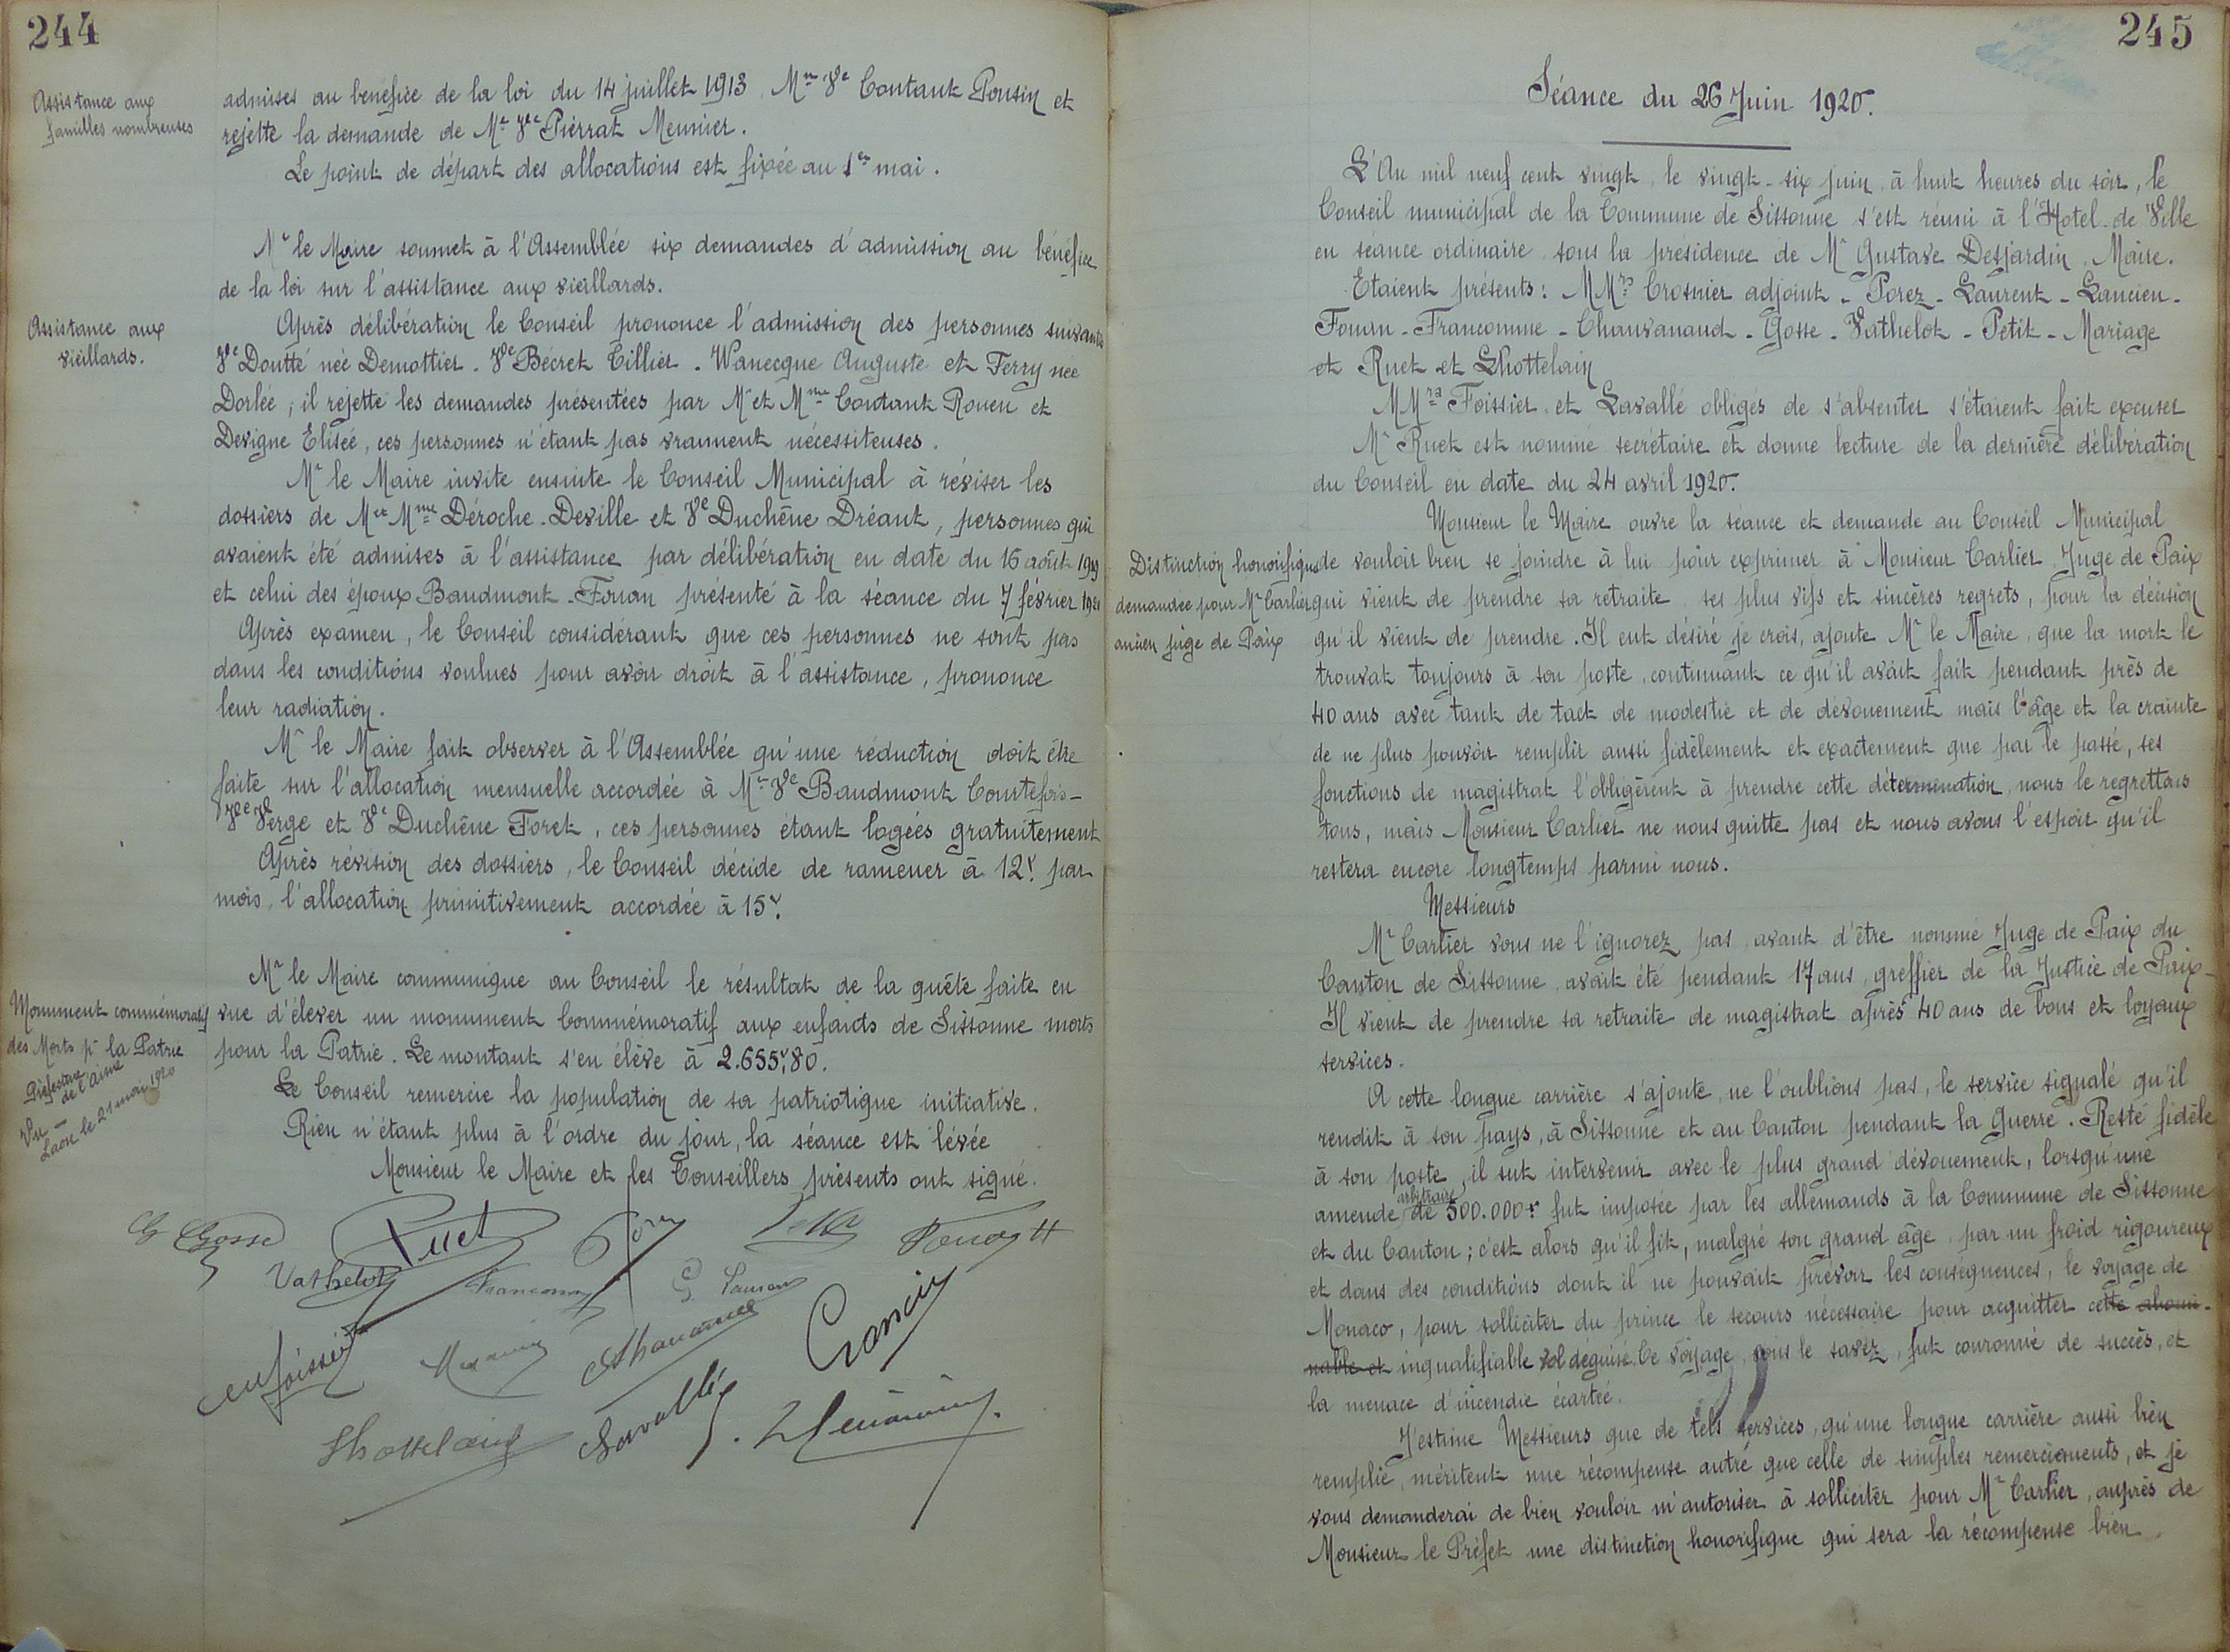 244
Assistance aux
familles nombreuses
admises au bénéfice de la loi du 14 juillet 1913, Mme Ve Coutant Pousin et
rejette la demande de Me Vve Piérrat Meunier.
Le point de départ des allocations est fixée au 1er mai.
Mr le Maire soumet à l'Assemblée six demandes d'admission au bénéfice
de la loi sur l'assistance aux vieillards.
Assistance aux
vieillards.
Après délibération le Conseil prononce l'admission des personnes suivantes
Ve Doutté née Demottier. Ve Bécret Tillier. Wanecque Auguste et Ferry née
Dorlée; il rejette les demandes présentées par Mr et Mme Coutant Rouen et
Devigne Elisée, ces personnes n'étant pas vraiment nécessiteuses.
Mr le Maire invite ensuite le Conseil Municipal à réviser les
dossiers de Mr et Mme Déroche. Deville et Ve Duchêne Dréant, personnes qui
avaient été admises à l'assistance par délibération en date du 16 août 1919
et celui des époux Baudmont-Fouan présenté à la séance du 7 février 1920
Après examen, le Conseil considérant que ces personnes ne sont pas
dans les conditions voulues pour avoir droit à l'assistance, prononce
leur radiation.
Mr le Maire fait observer à l'Assemblée qu'une réduction doit être
faite sur l'allocation mensuelle accordée à Me Ve Baudmont Courtefois-
Vve Verge et Ve Duchêne Foret, ces personnes étant logées gratuitement
Après révision des dossiers, le Conseil décide de ramener à 12f. par
mois, l'allocation primitivement accordée à 15f.
Mr le Maire communique au Conseil le résultat de la quête faite en
Monument commémoratif
des Morts pr la Patrie
vue d'élever un monument Commémoratif aux enfants de Sissonne morts
pour la Patrie. Le montant s'en élève à 2.655f,80.
Préfecture
de l'Aisne
Vu -
Laon le 21 mai 1920
Le Conseil remercie la population de sa patriotique initiative.
Rien n'étant plus à l'ordre du jour, la séance est lévée
Monsieur le Maire et les Conseillers présents ont signé.
G Gosse
Ruet
Petit
Vathelot
Franconme
G. Laurent
Foissier
Mariage
Chauvanaud
Lancien
Lhottelain
Lavallé
245
Séance du 26 Juin 1920.
L'An mil neuf cent vingt, le vingt-six juin, à huit heures du soir, le
Conseil municipal de la Commune de Sissonne s'est réuni à l'Hotel-de Ville
en séance ordinaire sous la présidence de Mr Gustave Desjardin, Maire.
Etaient présents: MMrs Crosnier adjoint - Porez - Laurent - Lancien -
Fouan - Franconme - Chauvanaud - Gosse - Vathelot - Petit - Mariage
et Ruet et Lhottelain
MMrs Foissier et Lavallé obligés de s'absenter s'étaient fait excuser
Mr Ruet est nommé secrétaire et donne lecture de la dernière délibération
du Conseil en date du 24 avril 1920.
Monsieur le Maire ouvre la séance et demande au Conseil Municipal
Distinction honorifique
demandée pour Mr Carlier
ancien juge de Paix
de vouloir bien se joindre à lui pour exprimer à Monsieur Carlier Juge de Paix
qui vient de prendre sa retraite ses plus vifs et sincères regrets, pour la décision
qu'il vient de prendre. Il eut désiré je crois, ajoute Mr le Maire, que la mort le
trouvat toujours à son poste, continuant ce qu'il avait fait pendant près de
40 ans avec tant de tact de modestie et de dévouement mais l'âge et la crainte
de ne plus pouvoir remplir aussi fidèlement et exactement que par le passé, ses
fonctions de magistrat l'obligèrent à prendre cette détermination, nous le regrettons
tous, mais Monsieur Carlier ne nous quitte pas et nous avons l'espoir qu'il
restera encore longtemps parmi nous.
Messieurs
Mr Carlier vous ne l'ignorez pas, avant d'être nommé Juge de Paix du
Canton de Sissonne, avait été pendant 17 ans, greffier de la Justice de Paix-
Il vient de prendre sa retraite de magistrat après 40 ans de bons et loyaux
services.
A cette longue carrière s'ajoute, ne l'oublions pas, le service signalé qu'il
rendit à son pays, à Sissonne et au Canton pendant la Guerre. Resté fidèle
à son poste, il sut intervenir avec le plus grand dévouement, lorsqu'une
arbitraire
amende de 500.000f fut imposée par les allemands à la Commune de Sissonne
et du Canton; c'est alors qu'il fit, malgré son grand âge, par un froid rigoureux
et dans des conditions dont il ne pouvait prévoir les conséquences, le voyage de
Monaco, pour solliciter du prince le secours nécessaire pour acquitter cette abomi-
nable et inqualifiable vol déguisé. Ce voyage, vous le savez, fut couronné de succès, et
la menace d'incendie écartée.
J'estime Messieurs que de tels services, qu'une longue carrière aussi bien
remplie, méritent une récompense autre que celle de simples remerciements, et je
vous demanderai de bien vouloir m'autoriser à solliciter pour Mr Carlier, auprès de
Monsieur le Préfet une distinction honorifique qui sera la récompense bien